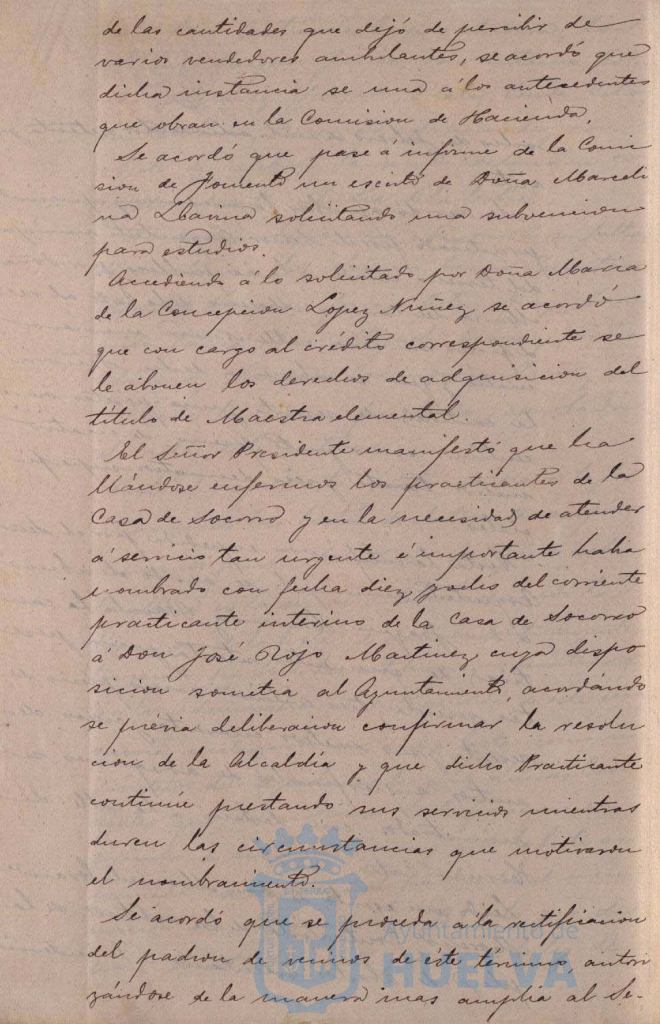 de las cantidades que dejó de percibir de
varios vendedores ambulantes, se acordó que
dicha instancia se una á los antecedentes
que obran en la Comision de Hacienda.
Se acordó que pase á informe de la Comi
sion de Fomento un escrito de Doña Marceli
na solicitando una subvencion
para estudios.
Accediendo á lo solicitado por Doña Maria
de la Concepcion Lopez Nuñez se acordó
que con cargo al crédito correspondiente se
le abonen los derechos de adquisicion del
título de Maestra elemental.
El Señor Presidente manifestó que ha
llándose enfermos los practicantes de la
Casa de Socorro y en la necesidad de atender
á servicio tan urgente é importante habia
nombrado con fecha diez y ocho del corriente
practicante interino de la Casa de Socorro
á Don José Rojo Martinez cuya dispo
sicion sometia al Ayuntamiento, acordándo
se prévia deliberacion confirmar la resolu
cion de la Alcaldía y que dicho Practicante
continúe prestando sus servicios mientras
duren las circunstancias que motivaron
el nombramiento.
Se acordó que se proceda a la rectificacion
del padron de vecinos de éste término, autori
zándose de la manera mas amplia al Se-
Ayuntamiento de
HUELVA